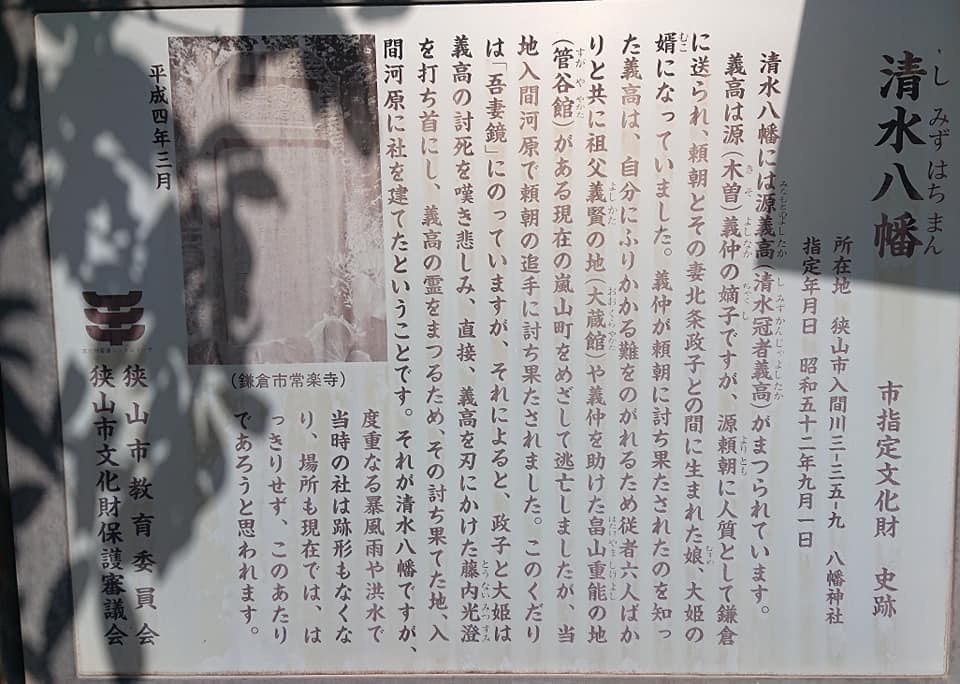 清水八幡
しみずはちまん
市指定文化財 史跡
所在地 狭山市入間川三-三五-九 八幡神社
指定年月日 昭和五十二年九月一日
清水八幡には源義高(清水冠者義高)がまつられています。
義高は源(木曽)義仲の嫡子ですが、源頼朝に人質として鎌倉
に送られ、頼朝とその妻北条政子との間に生まれた娘、大姫の
婿になっていました。義仲が頼朝に討ち果たされたのを知っ
た義高は、自分にふりかかる難をのがれるため従者六人ばか
りと共に祖父義賢の地(大蔵館)や義仲を助けた畠山重能の地
(管谷館)がある現在の嵐山町をめざして逃亡しましたが、当
地入間河原で頼朝の追手に討ち果たされました。このくだり
は「吾妻鏡」にのっていますが、それによると、政子と大姫は
義高の討死を嘆き悲しみ、直接、義高を刃にかけた藤内光澄
を打ち首にし、義高の霊をまつるため、その討ち果てた地、入
間河原に社を建てたということです。それが清水八幡ですが、
度重なる暴風雨や洪水で
当時の社は跡形もなくな
り、場所も現在では、は
っきりせず、このあたり
であろうと思われます。
(鎌倉市常楽寺)
平成四年三月
狭山市教育委員会
狭山市文化財保護審議会